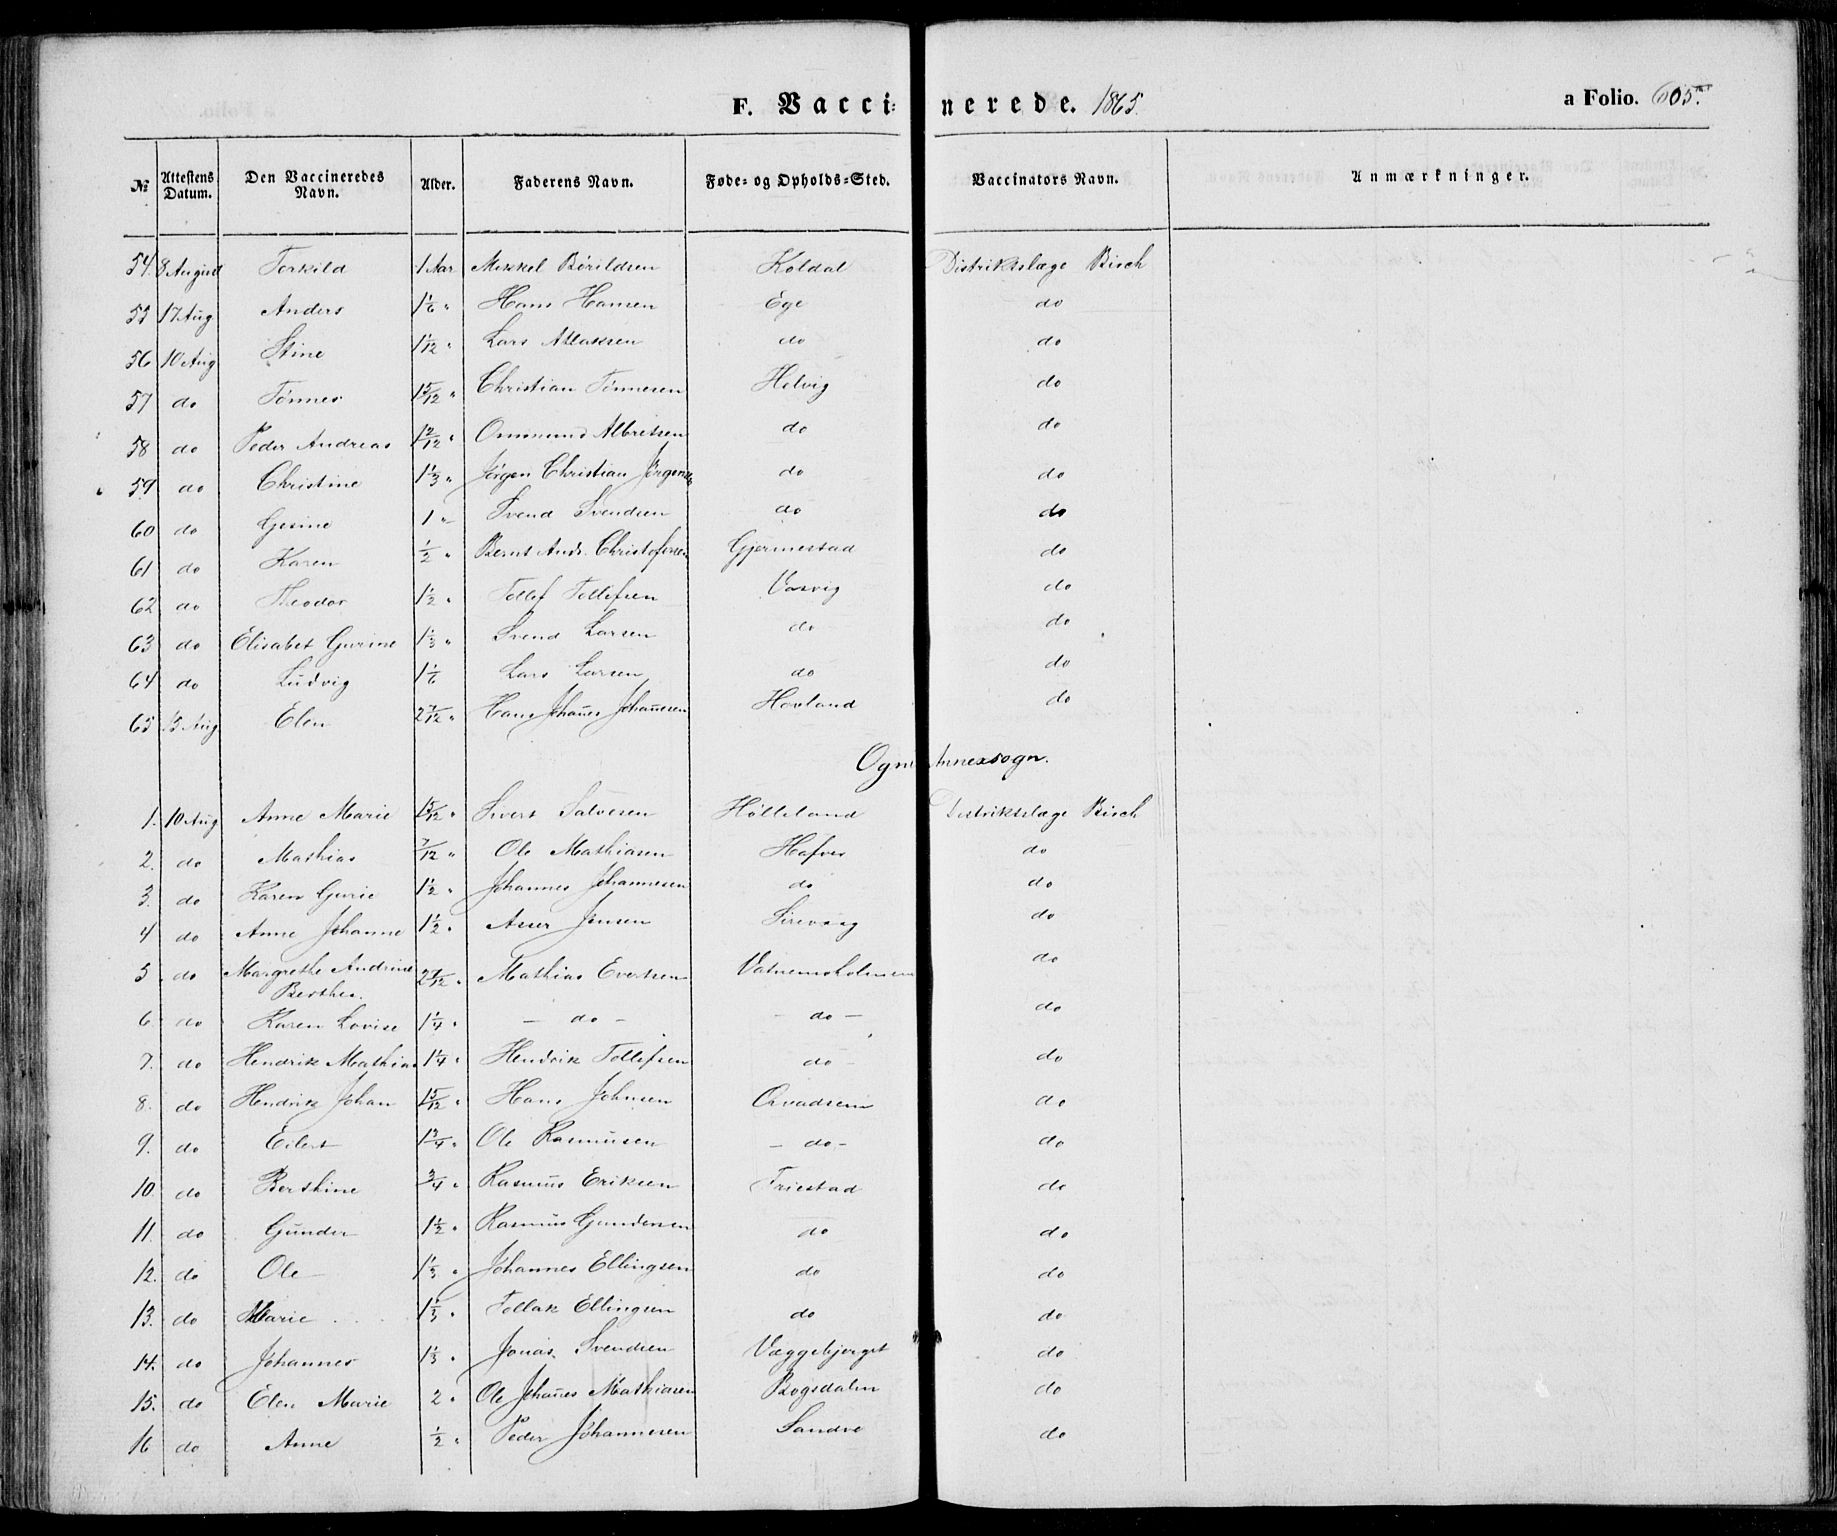 F. Vaccinerede. 1865. a Folio. 605.
№ Attestens Datum. Den Vaccineredes Navn. Alder. Faderens Navn. Føde- og Opholds-Sted. Vaccinators Navn. Anmærkninger.
54. 8 August Terkild 1 Aar Mikkel Börildsen Koldal Distriktslæge Bisch
55 17 Aug Anders 1 1/6 " Hans Hansen Ege do
56 10 Aug Stine 1 1/12 " Lars Aslaksen do do
57 do Tønnes 1 5/12 " Christian Tønnesen Helvig do
58 do Peder Andreas 1 2/12 " Ommund Albretsen do do
59. do Christine 1 1/3 " Jörgen Christian Jörgensen do do
60 do Gesine 1 " Svend Svendsen do do
61 do Karen 1/2 " Bernt Andr. Christofersen Gjermestad do
62 do Theodor 1 1/2 " Tollef Tollefsen Vasvig do
63 do Elisabet Gurine 1 1/3 " Svend Larsen do do
64 do Ludvig 1 1/6 Lars Larsen do do
65 13 Aug Elen 2 7/12 " Hans Johañes Johañesen Hovland do
Ogne Annexsogn.
1. 10 Aug Anne Marie 1 5/12 " Sivert Salvesen Hölleland Distriktslæge Bisch
2. do Mathias 7/12 " Ole Mathiasen Hafver do
3. do Karen Gurie 1 1/2 " Johannes Johannesen do do
4 do Anne Johanne 1 1/2 " Asser Jensen Sirevaag do
5 do Margrethe Andrine 2 7/12 " Mathias Evertsen Vatnemsholmen do
Berthea.
6. do Karen Lovise 1 1/4 " — do — — do — do
7. do Hendrik Mathias 1 1/4 " Hendrik Tollefsen do — do
8. do Hendrik Johan 1 5/12 " Hans Johnsen Qvadsem do
9. do Eilert 1 3/4 " Ole Rasmusen — do — do
10. do Berthine 3/4 " Rasmus Eriksen Friestad do
11. do Gunder 1 1/2 " Rasmus Gundersen do do
12. do Ole 1 1/3 " Johannes Ellingsen do do
13. do Marie 1 1/3 " Tollak Ellingsen do do
14. do Johannes 1 1/3 " Jonas Svendsen Væggebjerget do
15. do Elen Marie 2 " Ole Johañes Mathiasen Bogsdalen do
16 do Anne 1/2 " Peder Johannesen Sandve do